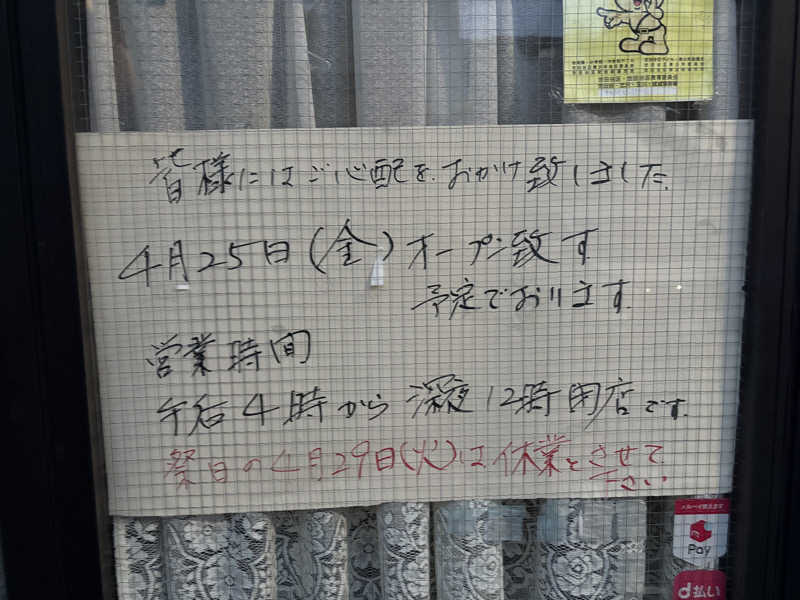 皆様にはご心配を.おかけ致しました.
4月25日(金)オープン致す
予定でおります.
営業時間
午后4時から 深夜12時閉店です.
祭日の4月29日(火)は休業とさせて
下さい
メルペイ使えます
Pay
d払い